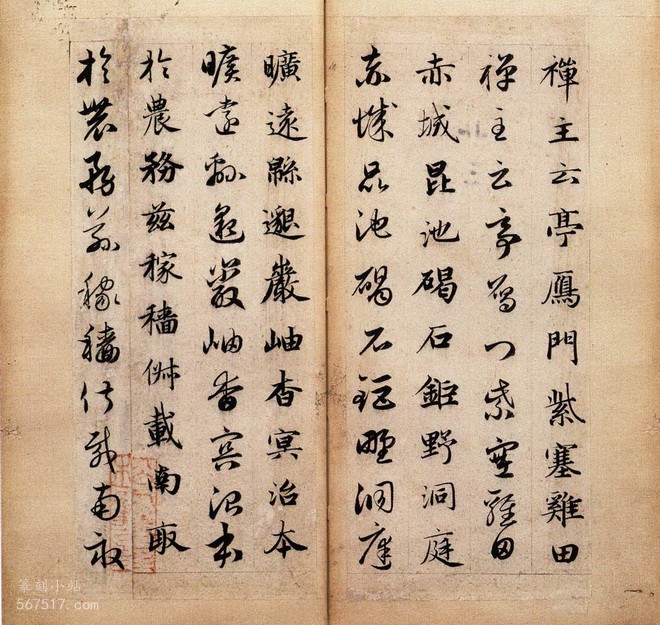 禪主云亭鴈門紫塞雞田
禪主云亭鴈門紫塞雞田
赤城昆池碣石鉅野洞庭
赤城昆池碣石鉅野洞庭
曠遠緜邈巖岫杳冥治本
曠遠緜邈巖岫杳冥治本
於農務茲稼穡俶載南畝
於農務茲稼穡俶載南畝
篆刻小站
567517.com